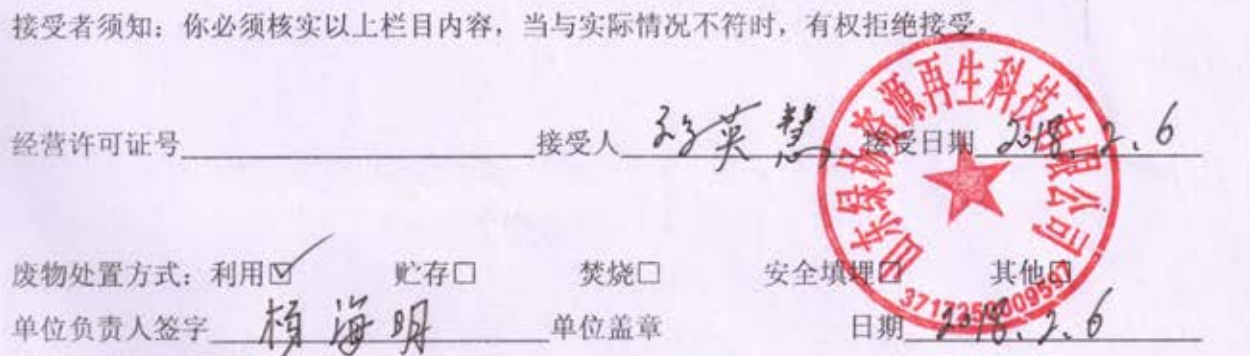 接受者须知：你必须核实以上栏目内容，当与实际情况不符时，有权拒绝接受。
经营许可证号 接受人 英慧 接受日期 2018.2.6
山东绿扬资源再生科技有限公司
废物处置方式：利用☑ 贮存□ 焚烧□ 安全填埋□ 其他□
单位负责人签字 杨海明 单位盖章 日期 2018.2.6